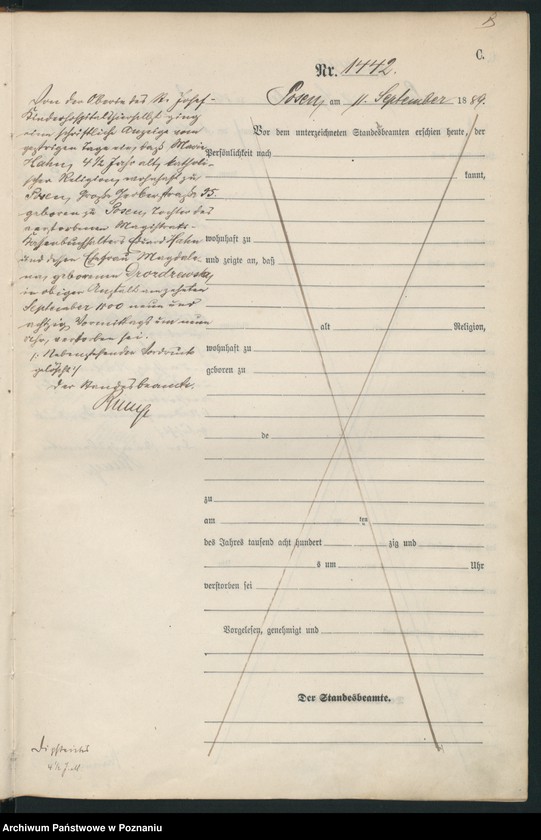 B
C.
Nr. 1442.
Posen, am 11. September 1889.
Von der Oberin des St. Josef-
Kinderhospitals hierselbst ging
eine schriftliche Anzeige vom
gestrigen Tage ein, daß Marie
Hahn, 4 1/2 Jahr alt, katholi-
schen Religion, wohnhaft zu
Posen, Große Gerberstraße 95
geboren zu Posen, Tochter des
verstorbenen Magistrats-
Hahn
und dessen Ehefrau Magdale-
na, geborenen
in obiger Anstalt am zehnten
September 1800 neun und
achtzig, Vormittags um neun
Uhr, verstorben sei.
/: Nebenstehender Vordruck
gelöscht :/
Der Standesbeamte.
Vor dem unterzeichneten Standesbeamten erschien heute, der
Persönlichkeit nach
kannt,
wohnhaft zu
und zeigte an, daß
alt Religion,
wohnhaft zu
geboren zu
de
zu
am ten
des Jahres tausend acht hundert zig und
s um Uhr
verstorben sei
Vorgelesen, genehmigt und
Der Standesbeamte.
4 1/2 J.
Archiwum Państwowe w Poznaniu